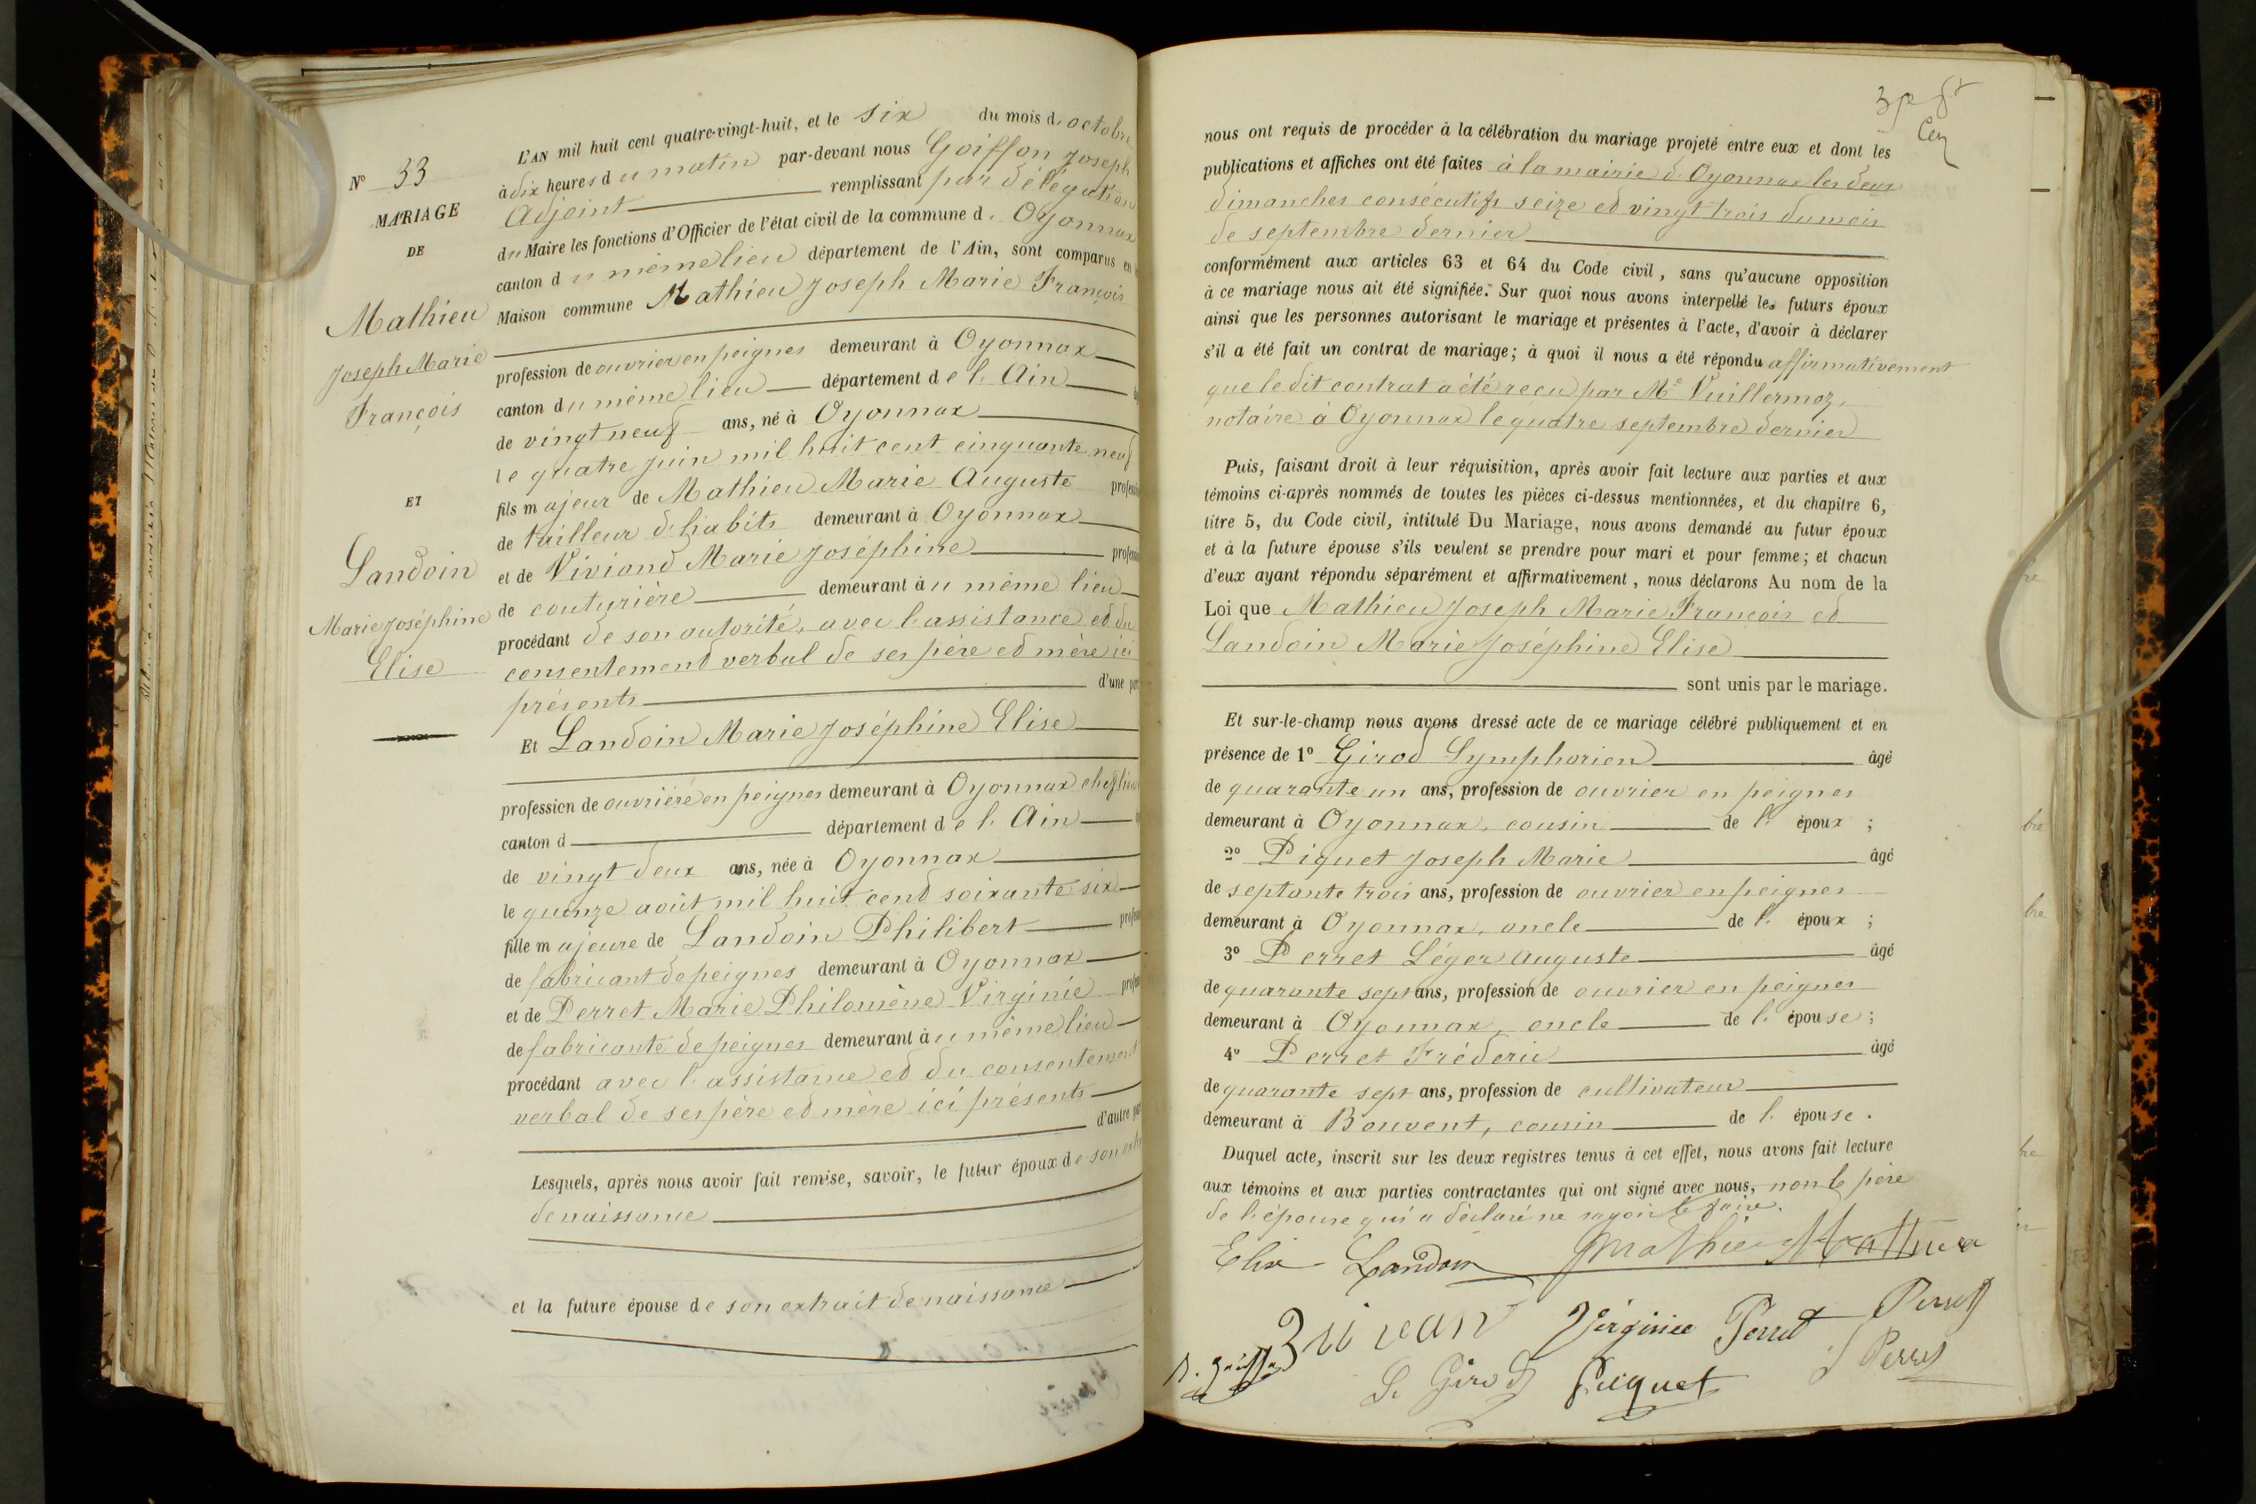 N° 33
MARIAGE
DE
Mathieu
Joseph Marie
François
ET
Landoin
Marie Joséphine
Elise
L'AN mil huit cent quatre-vingt-huit, et le six du mois d'octobre
à dix heures du matin par-devant nous Goiffon Joseph
Adjoint remplissant par délégation
du Maire les fonctions d'Officier de l'état civil de la commune d'Oyonnax
canton du même lieu département de l'Ain, sont comparus en la
Maison commune Mathieu Joseph Marie François
profession de ouvrier en peignes demeurant à Oyonnax
canton du même lieu département de l'Ain
de vingt neuf ans, né à Oyonnax
le quatre juin mil huit cent cinquante neuf
fils majeur de Mathieu Marie Auguste profession
de tailleur d'habits demeurant à Oyonnax
et de Viviand Marie Joséphine profession
de couturière demeurant au même lieu
procédant de son autorité, avec l'assistance et du
consentement verbal de ses père et mère ici
présents d'une part
Et Landoin Marie Joséphine Elise
profession de ouvrière en peignes demeurant à Oyonnax chef lieu
canton d département de l'Ain
de vingt deux ans, née à Oyonnax
le quinze août mil huit cent soixante six
fille majeure de Landoin Philibert profession
de fabricant de peignes demeurant à Oyonnax
et de Perret Marie Philomène Virginie profession
de fabricante de peignes demeurant au même lieu
procédant avec l'assistance et du consentement
verbal de ses père et mère ici présents
d'autre part
Lesquels, après nous avoir fait remise, savoir, le futur époux de son extrait
de naissance
et la future épouse de son extrait de naissance
nous ont requis de procéder à la célébration du mariage projeté entre eux et dont les
publications et affiches ont été faites à la mairie d'Oyonnax les deux
dimanches consécutifs seize et vingt trois du mois
de septembre dernier
conformément aux articles 63 et 64 du Code civil, sans qu'aucune opposition
à ce mariage nous ait été signifiée. Sur quoi nous avons interpellé les futurs époux
ainsi que les personnes autorisant le mariage et présentes à l'acte, d'avoir à déclarer
s'il a été fait un contrat de mariage; à quoi il nous a été répondu affirmativement
que le dit contrat a été reçu par Me Vuillermoz,
notaire à Oyonnax le quatre septembre dernier
Puis, faisant droit à leur réquisition, après avoir fait lecture aux parties et aux
témoins ci-après nommés de toutes les pièces ci-dessus mentionnées, et du chapitre 6,
titre 5, du Code civil, intitulé Du Mariage, nous avons demandé au futur époux
et à la future épouse s'ils veulent se prendre pour mari et pour femme; et chacun
d'eux ayant répondu séparément et affirmativement, nous déclarons Au nom de la
Loi que Mathieu Joseph Marie François et
Landoin Marie Joséphine Elise
sont unis par le mariage.
Et sur-le-champ nous avons dressé acte de ce mariage célébré publiquement et en
présence de 1° Girod Symphorien âgé
de quarante un ans, profession de ouvrier en peignes
demeurant à Oyonnax, cousin de l'époux ;
2° Piquet Joseph Marie âgé
de septante trois ans, profession de ouvrier en peignes
demeurant à Oyonnax, oncle de l'époux ;
3° Perret Léger Auguste âgé
de quarante sept ans, profession de ouvrier en peignes
demeurant à Oyonnax, oncle de l'épouse ;
4° Perret Fréderic âgé
de quarante sept ans, profession de cultivateur
demeurant à Bouvent, cousin de l'épouse.
Duquel acte, inscrit sur les deux registres tenus à cet effet, nous avons fait lecture
aux témoins et aux parties contractantes qui ont signé avec nous, non le père
de l'épouse qui a déclaré ne savoir le faire.
Elise Landoin Mathieu Mathieu
Virginie Perret Perret
S. Girod Picquet Perret